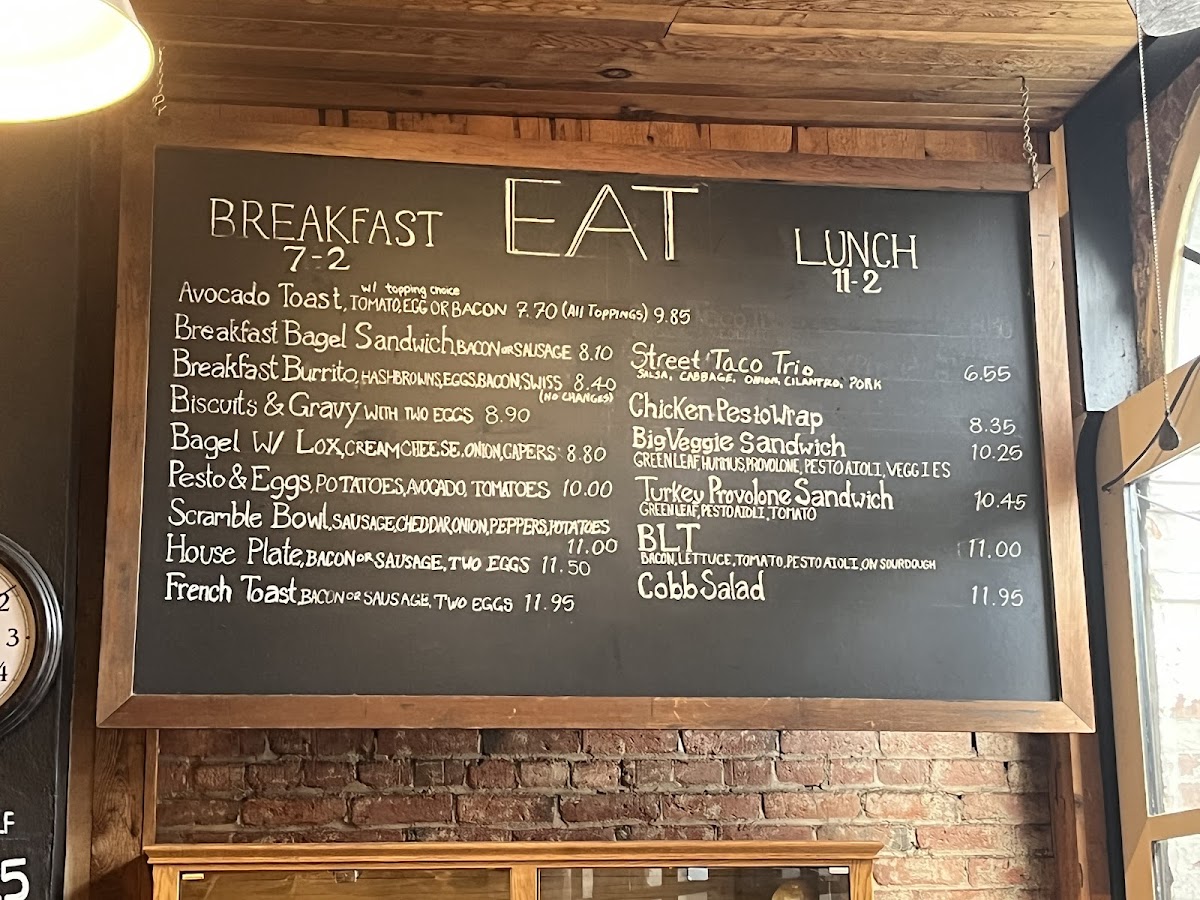 EAT
BREAKFAST
7-2
w/ topping choice
Avocado Toast, TOMATO, EGG OR BACON 7.70 (All Toppings) 9.85
Breakfast Bagel Sandwich, BACON OR SAUSAGE 8.10
Breakfast Burrito, HASHBROWNS, EGGS, BACON, SWISS 8.40
(NO CHANGES)
Biscuits & Gravy WITH TWO EGGS 8.90
Bagel W/ Lox, CREAM CHEESE, ONION, CAPERS 8.80
Pesto & Eggs, POTATOES, AVOCADO, TOMATOES 10.00
Scramble Bowl, SAUSAGE, CHEDDAR, ONION, PEPPERS, POTATOES
11.00
House Plate, BACON OR SAUSAGE, TWO EGGS 11.50
French Toast, BACON OR SAUSAGE, TWO EGGS 11.95
LUNCH
11-2
Street Taco Trio 6.55
SALSA, CABBAGE, ONION, CILANTRO, PORK
Chicken Pesto Wrap 8.35
Big Veggie Sandwich 10.25
GREEN LEAF, HUMMUS, PROVOLONE, PESTO AIOLI, VEGGIES
Turkey Provolone Sandwich 10.45
GREEN LEAF, PESTO AIOLI, TOMATO
BLT 11.00
BACON, LETTUCE, TOMATO, PESTO AIOLI, ON SOURDOUGH
Cobb Salad 11.95
2
3
4
5